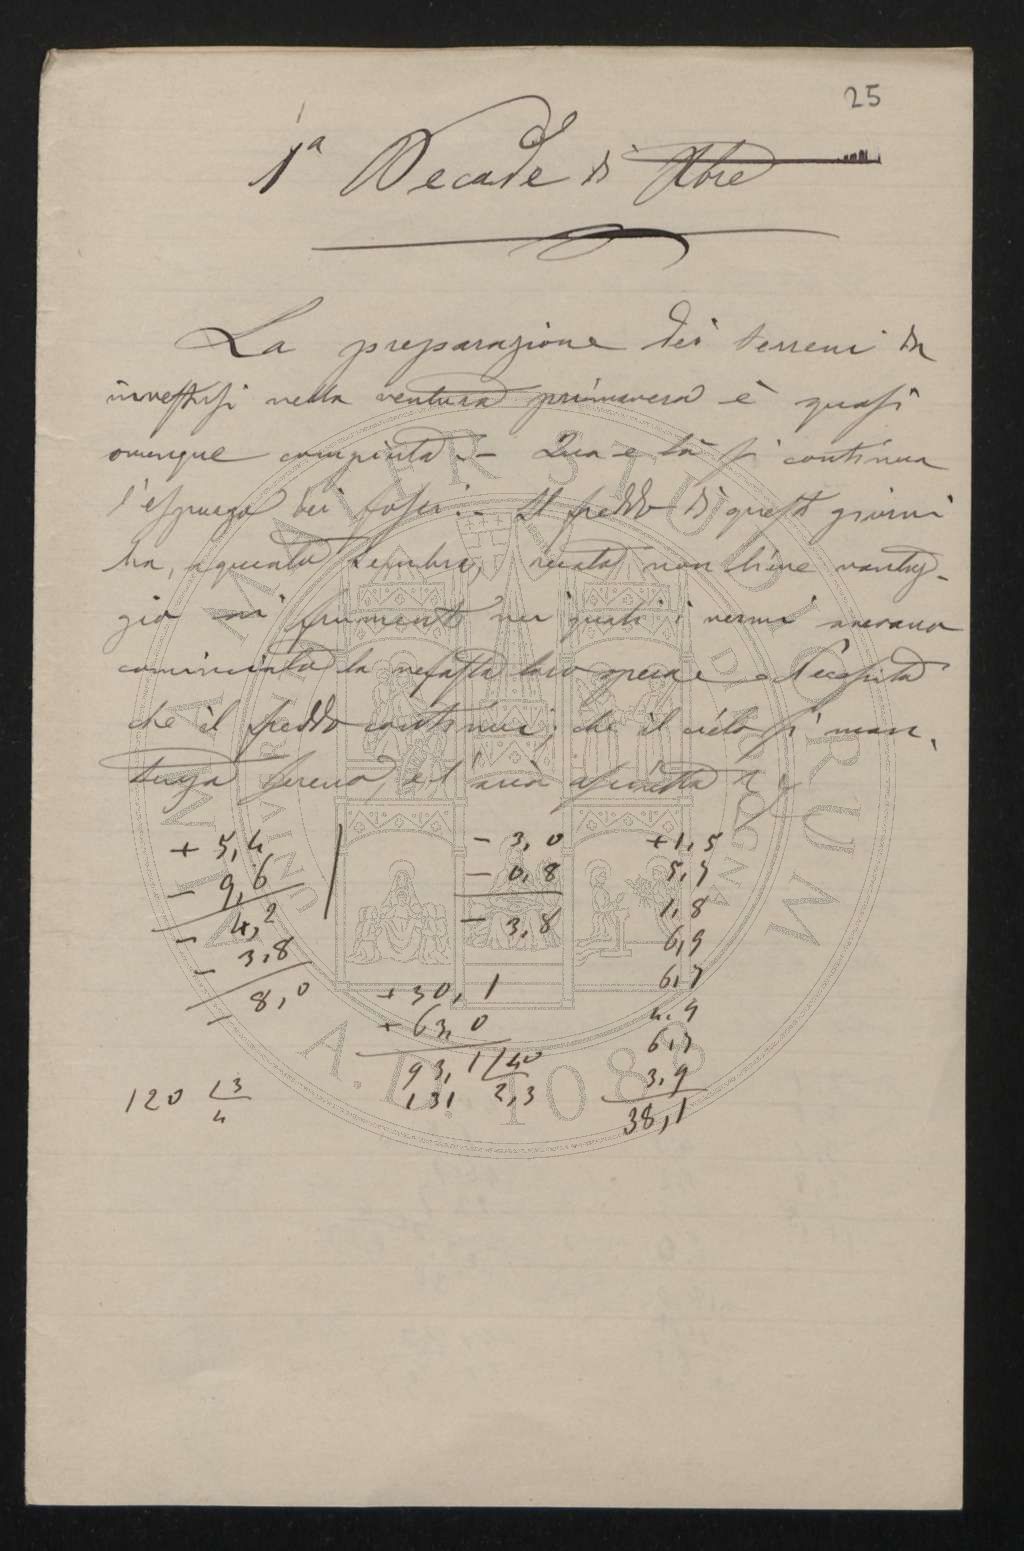 25
1ª Decade di Xbre
La preparazione dei terreni da
investirsi nella ventura primavera è quasi
ovunque compiuta. – Qua e là si continua
l'espurgo dei fossi. – Il freddo di questi giorni
ha, a quanto sembra, recato non lieve vantag-
gio ai frumenti nei quali i vermi avevano
cominciato la nefasta loro opera e necessita
che il freddo continui; che il cielo si man-
tenga sereno, e l'aria asciutta
+ 5,4
- 9,6
- 4,2
- 3,8
- 8,0
- 3,0
- 0,8
- 3,8
+ 1,5
5,7
1,8
6,9
6,7
4,9
6,7
3,9
38,1
+ 30,1
+ 63,0
93,1 / 40
131 2,3
120 | 3
4
ALMA MATER STUDIORUM
UNIVERSITÀ DI BOLOGNA
A.D. 1088